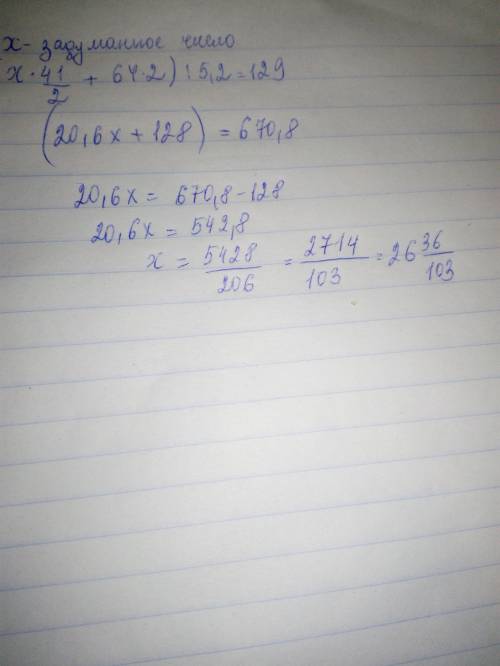 x - задуманное число
x · 41/2 + 64·2) : 5,2 = 129
(20,6x + 128) = 670,8
20,6x = 670,8 - 128
20,6x = 542,8
x = 5428/206 = 2714/103 = 26 36/103